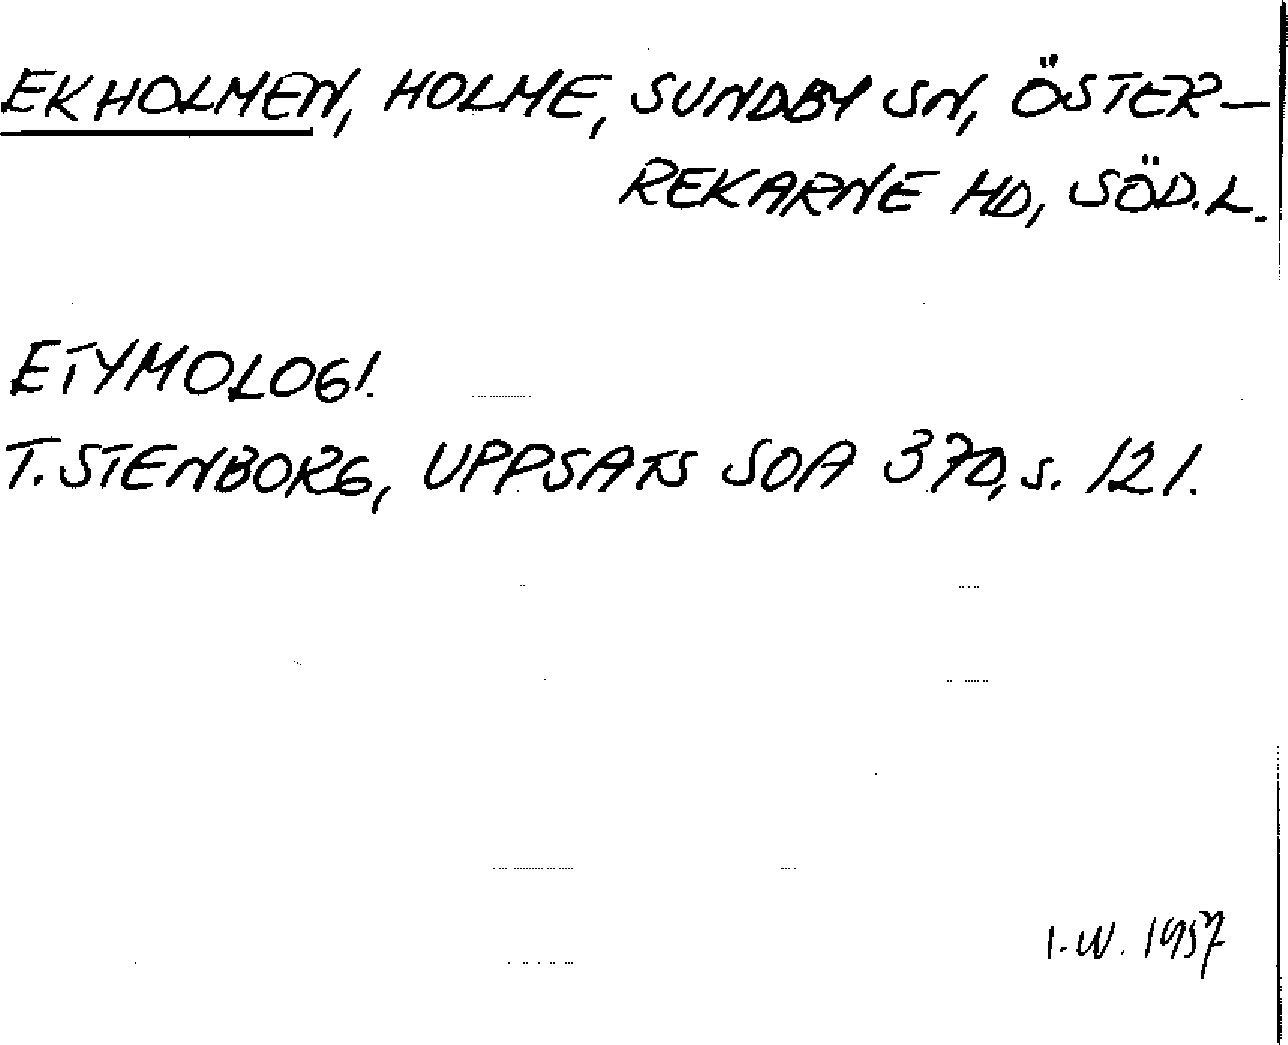 EKHOLMEN, HOLME, SUNDBY SN, ÖSTER-
REKARNE HD, SÖD.L.
ETYMOLOGI.
T. STENBORG, UPPSATS SOA 370, s. 121.
I.W. 1957